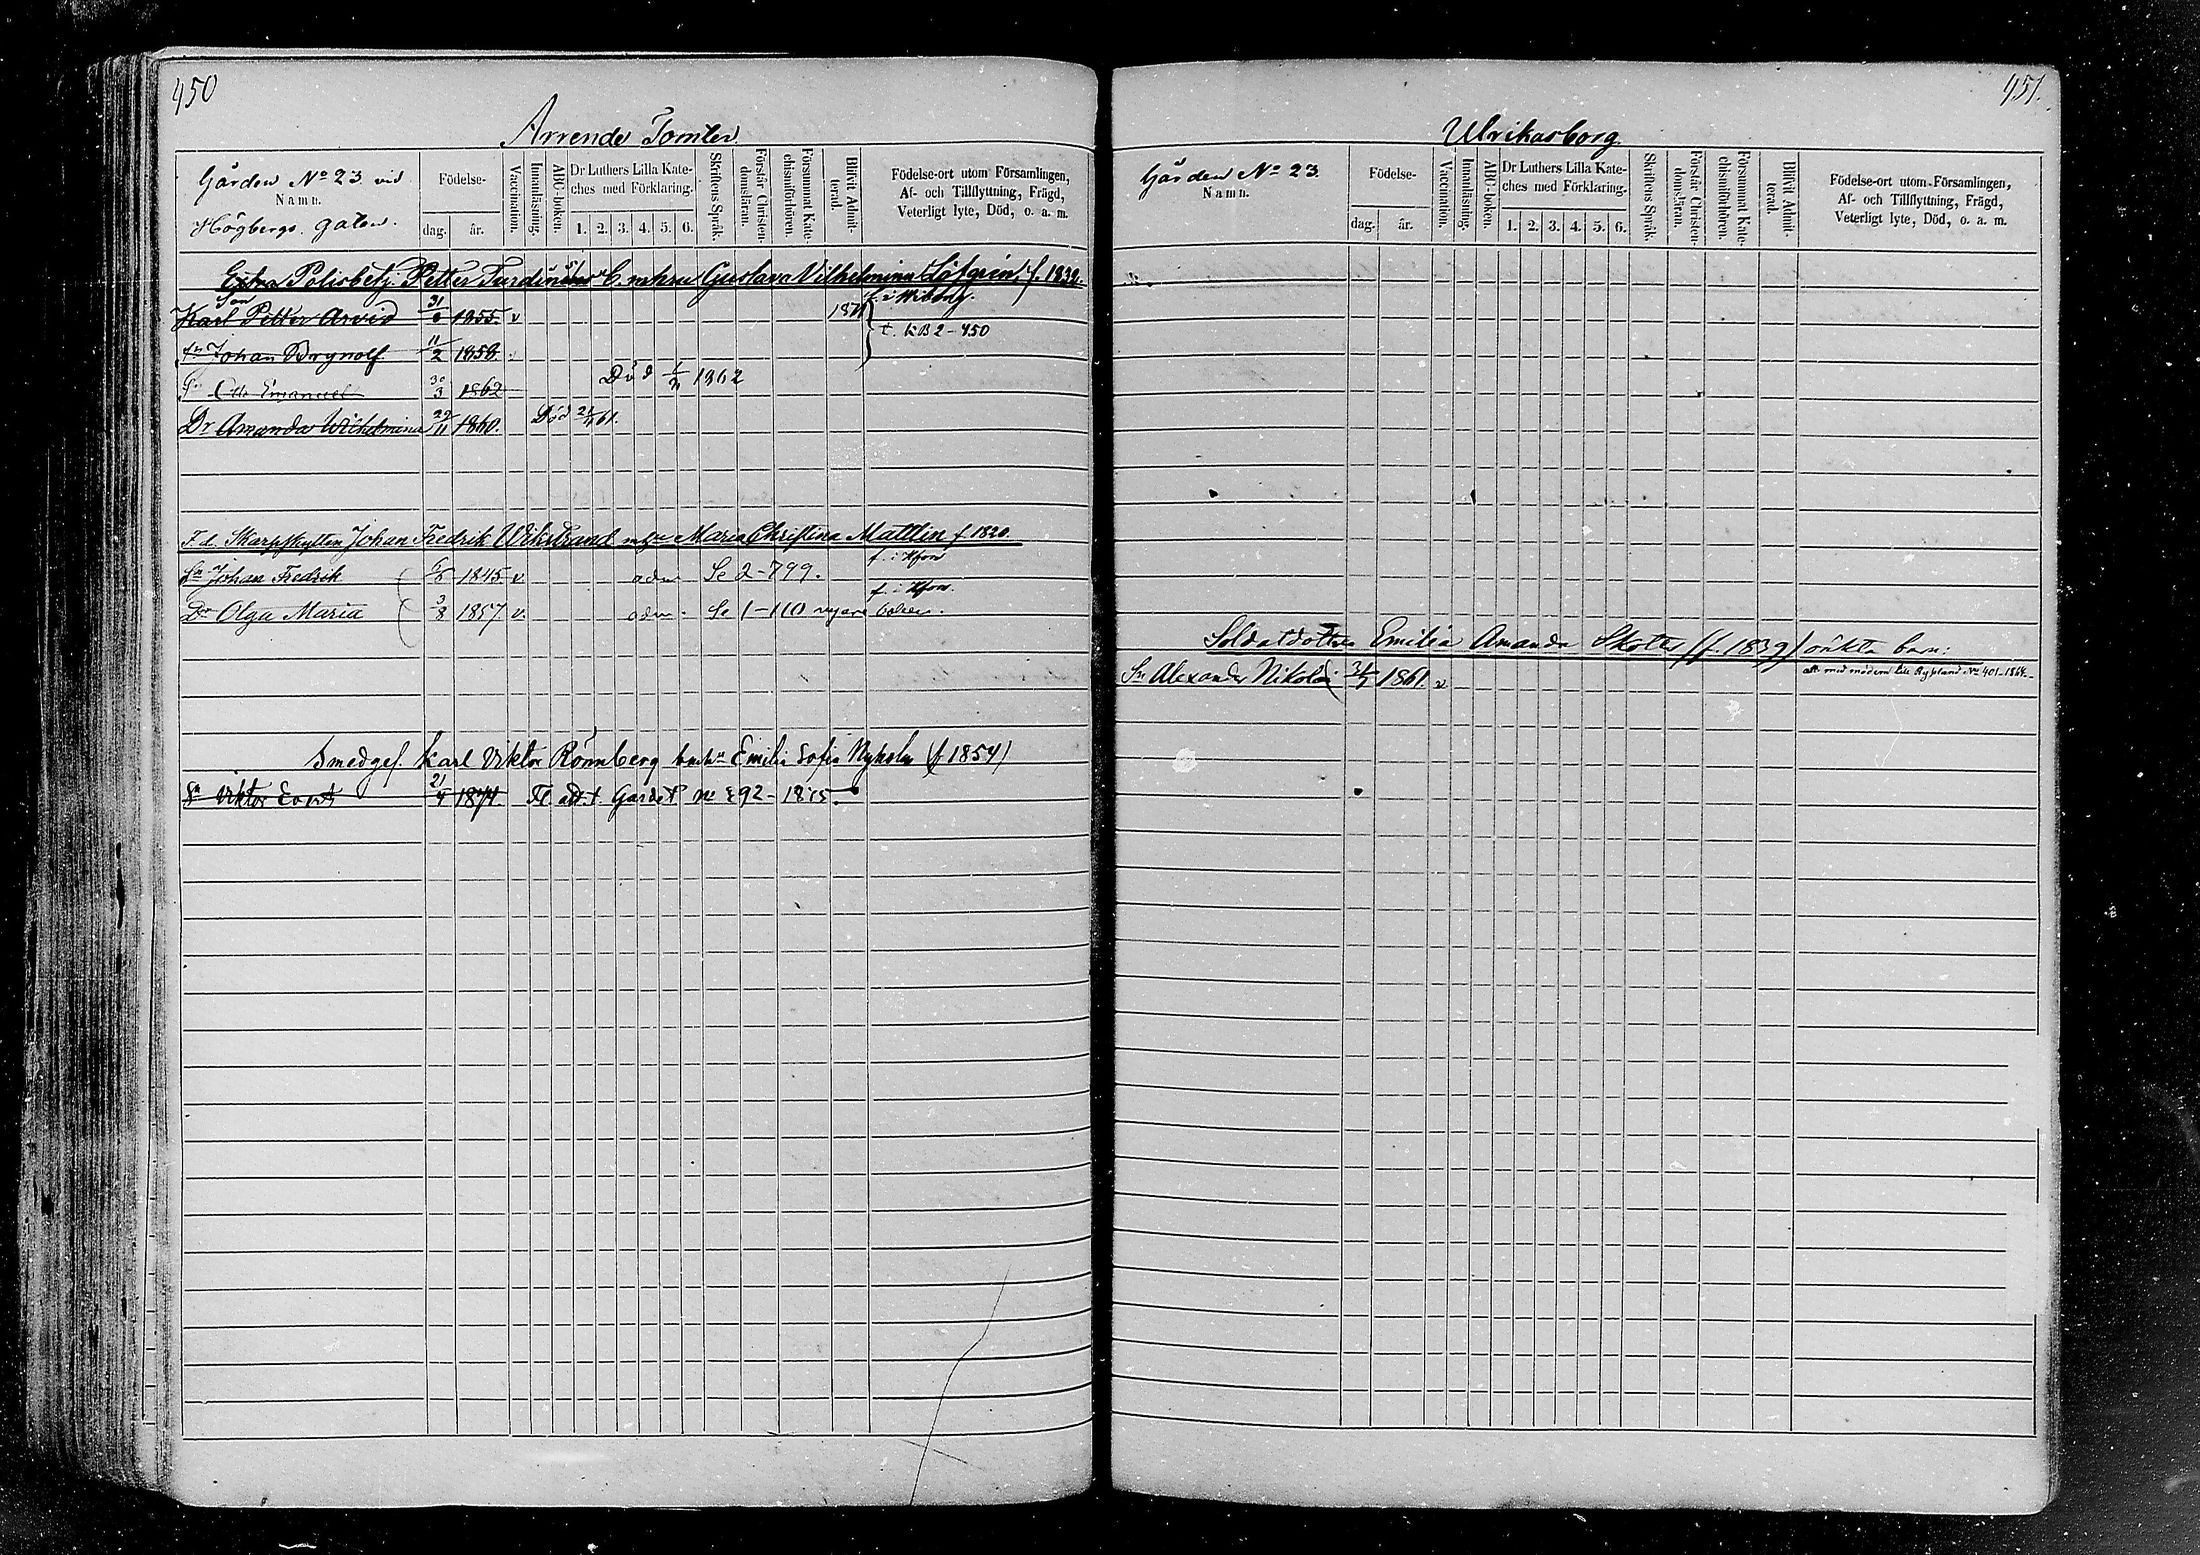 450
Arrende Tomter.
Gården No 23 vid
Namn.
Högbergs gatan.
Födelse-
dag. år.
Vaccination.
Innanläsning.
ABC-boken.
Dr Luthers Lilla Kate-
ches med Förklaring.
1. 2. 3. 4. 5. 6.
Skriftens Språk.
Förstår Christen-
domsläran.
Försummat Kate-
chismiförhören.
Blifvit Admit-
terad.
Födelse-ort utom Församlingen,
Af- och Tillflyttning, Frägd,
Veterligt lyte, Död, o. a. m.
Extra Polisbetj. Petter m hru Gustava Vilhelmina Löfgren f. 1832.
Son f. i Wiborg.
Karl Petter Arvid 31/6 1855. v 1871
t. KB 2-450
Sn Johan Brynolf 11/2 1858.
Sn Otto Emanuel 30/3 1862 Död 1862
Dr Amanda Wilhelmina 29/11 1860. Död 61.
F.d. Skarpskytten Johan Fredrik Wikstrand Maria Christina Mattlin f. 1820.
Sn Johan Fredrik 1845 v. adm Se 2-799. f. i Hfors
Dr Olga Maria 3/8 1857. v. adm. Se 1-110 nyare boken. f. i Hfors.
Smedges. Karl Viktor Rönnberg Emilia Sofia Nyholm (f 1854)
Sn Viktor Evert 21/4 1874 Fl. att. t. Gardet No 292-1875.
451.
Ulrikasborg.
Gården No 23.
Namn.
Födelse-
dag. år.
Vaccination.
Innanläsning.
ABC-boken.
Dr Luthers Lilla Kate-
ches med Förklaring.
1. 2. 3. 4. 5. 6.
Skriftens Språk.
Förstår Christen-
domsläran.
Försummat Kate-
chismiförhören.
Blifvit Admit-
terad.
Födelse-ort utom Församlingen,
Af- och Tillflyttning, Frägd,
Veterligt lyte, Död, o. a. m.
Soldatdottren Emilia Amanda (f. 1839) oäkta barn:
Sn Alexander Nikolai 1861. v att. med modern till Ryssland No 401-1864.